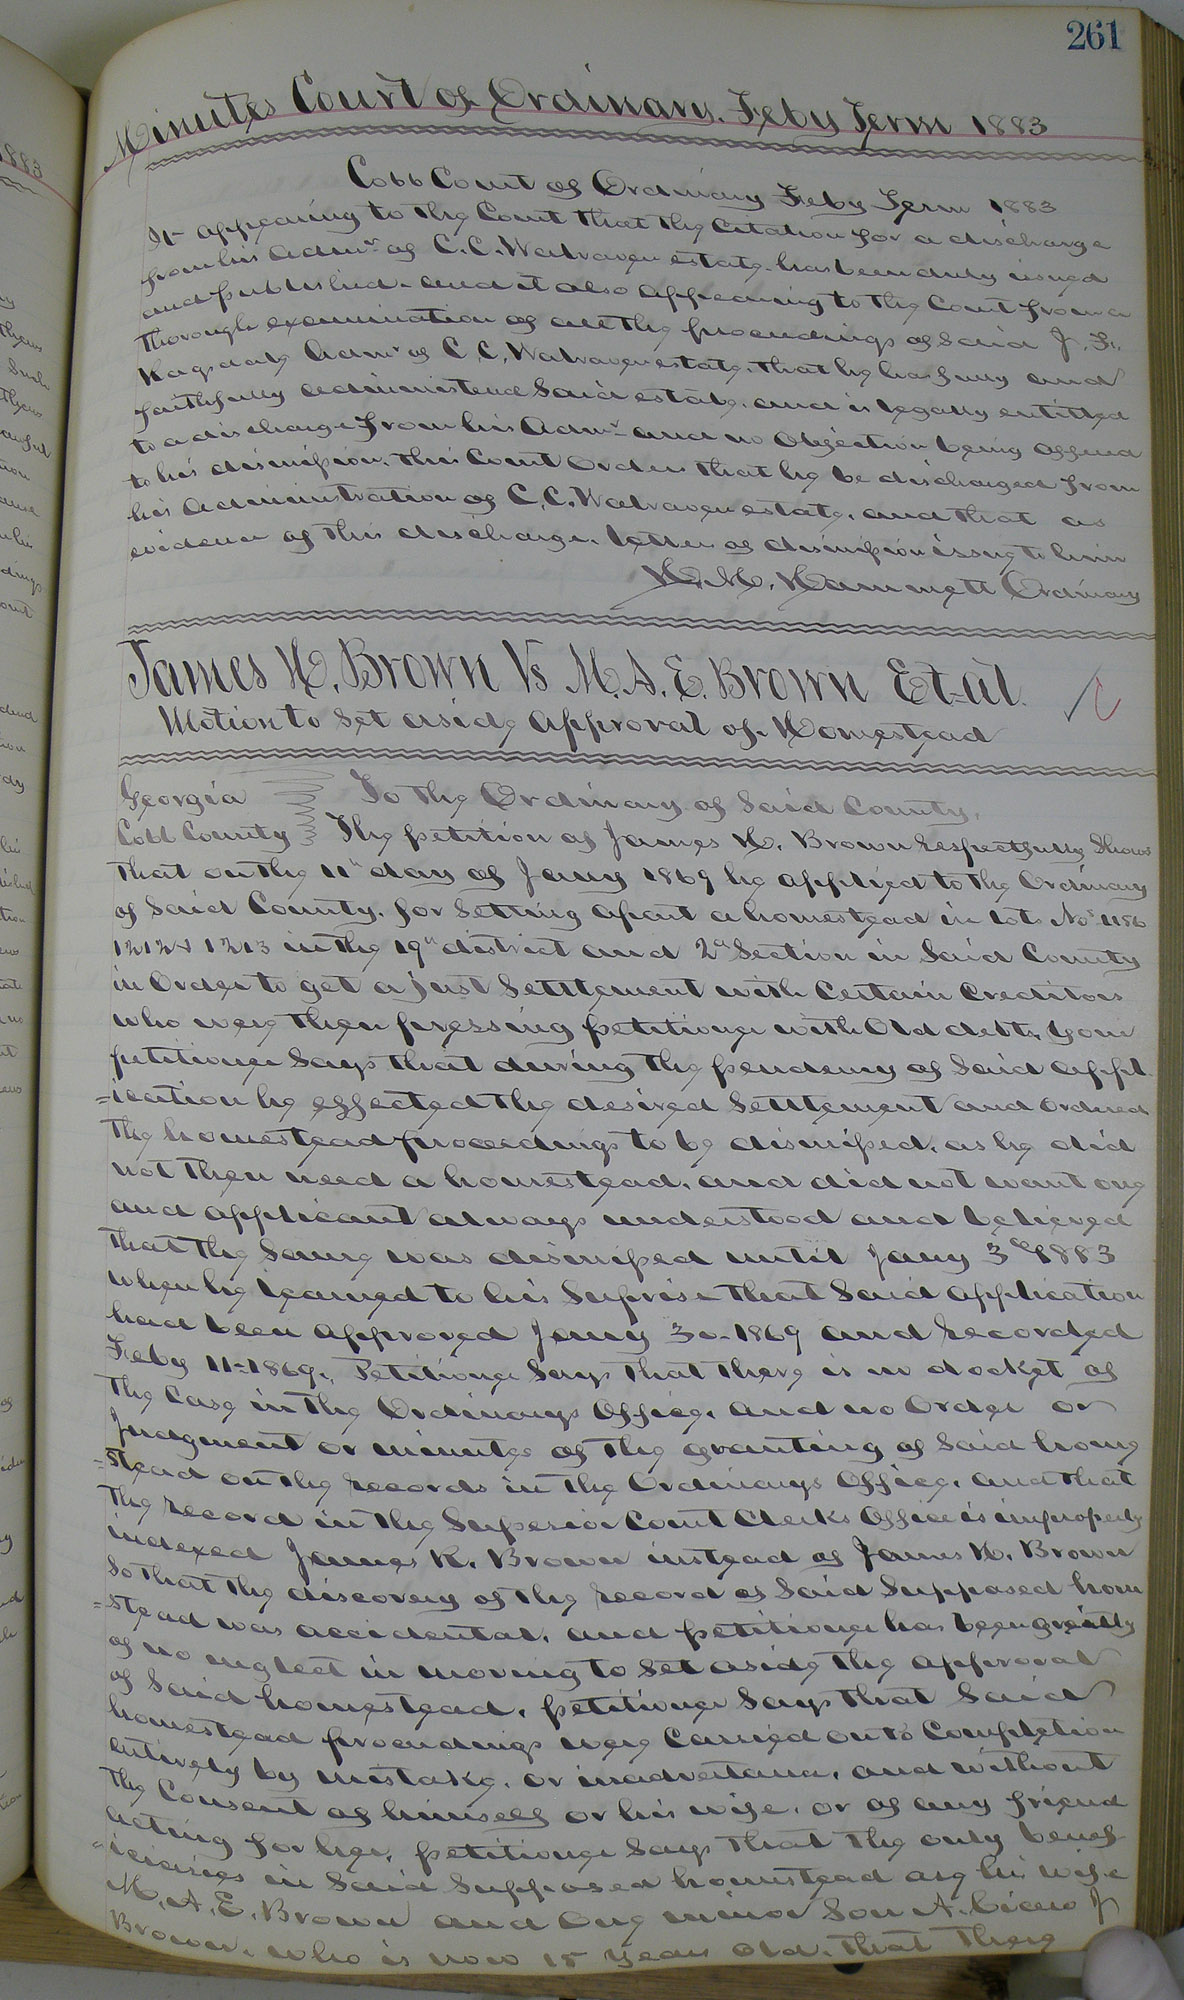 261
Minutes Court of Ordinary. Feby Term 1883
Cobb Court of Ordinary Feby Term 1883
It appearing to the Court that the Citation for a discharge
from his Admr. of C.C. Walraven estate has been duly issued
and published. and it also appearing to the Court from a
thorough examination of all the proceedings of Said J. F.
Ragsdale Admr of C. C. Walraven estate, that he has fully and
faithfully administered Said estate. and is legally entitled
to a discharge from his Admr. and no Objection being offered
to his dismission. this Court Orders that he be discharged from
his Administration of C. C. Walraven estate, and that as
evidence of this discharge. letters of dismission issue to him
H. M. Hammett Ordinary
James H. Brown Vs M. A. E. Brown Et-al.
Motion to Set aside approval of Homestead
Georgia To the Ordinary of Said County.
Cobb County The petition of James H. Brown respectfully Shows
that on the 11th day of Jany 1869 he applied to the Ordinary
of Said County. for Setting apart a homestead in lots Nos 1156
1212 & 1213 in the 19th district and 2d Section in Said County
in Order to get a just Settlement with Certain Creditors
who were then pressing petitioner with Old debts, your
petitioner Says that during the pendency of Said appl
=ication he effected the desired Settlement and ordered
the homestead proceedings to be dismissed. as he did
not then need a homestead. and did not want one
and applicant always understood and believed
that the Same was dismissed until Jany 3d 1883
when he learned to his Suprise that Said application
had been approved Jany 30-1869 and recorded
Feby 11-1869. Petitioner Says that there is no docket of
the Case in the Ordinarys Office. and no Order or
Judgment or minutes of the granting of Said home
=stead on the records in the Ordinarys Office. and that
the record in the Superior Court Clerks Office is improperly
indexed James R. Brown instead of James H. Brown
So that the discovery of the record of Said Supposed hom
=stead was accidental. and petitioner has been greatly
of no neglect in moving to Set aside the approval
of Said homestead. petitioner Says that Said
homestead proceedings were Carried on to Completion
entirely by mistake. or inadvertance. and without
the Consent of himself or his wife. or of any friend
acting for her. petitioner Says that the only benef
=iciaries in Said Supposed homestead are his wife
M. A. E. Brown and One minor Son J
Brown. who is now 15 years Old. that there